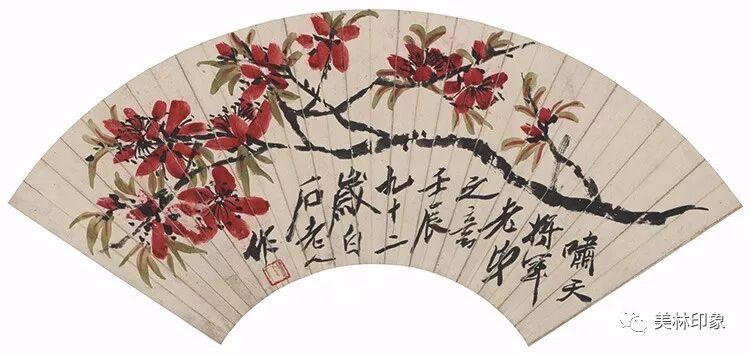 嘯天
将軍
老弟
之
壬辰
九十二
歲白
石老人
作
美林印象